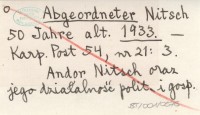 Abgeordneter Nitsch
50 Jahre alt. 1933. —
Karp. Post 54, nr 21: 3.
Andor Nitsch oraz
jego działalność polit. i gosp.